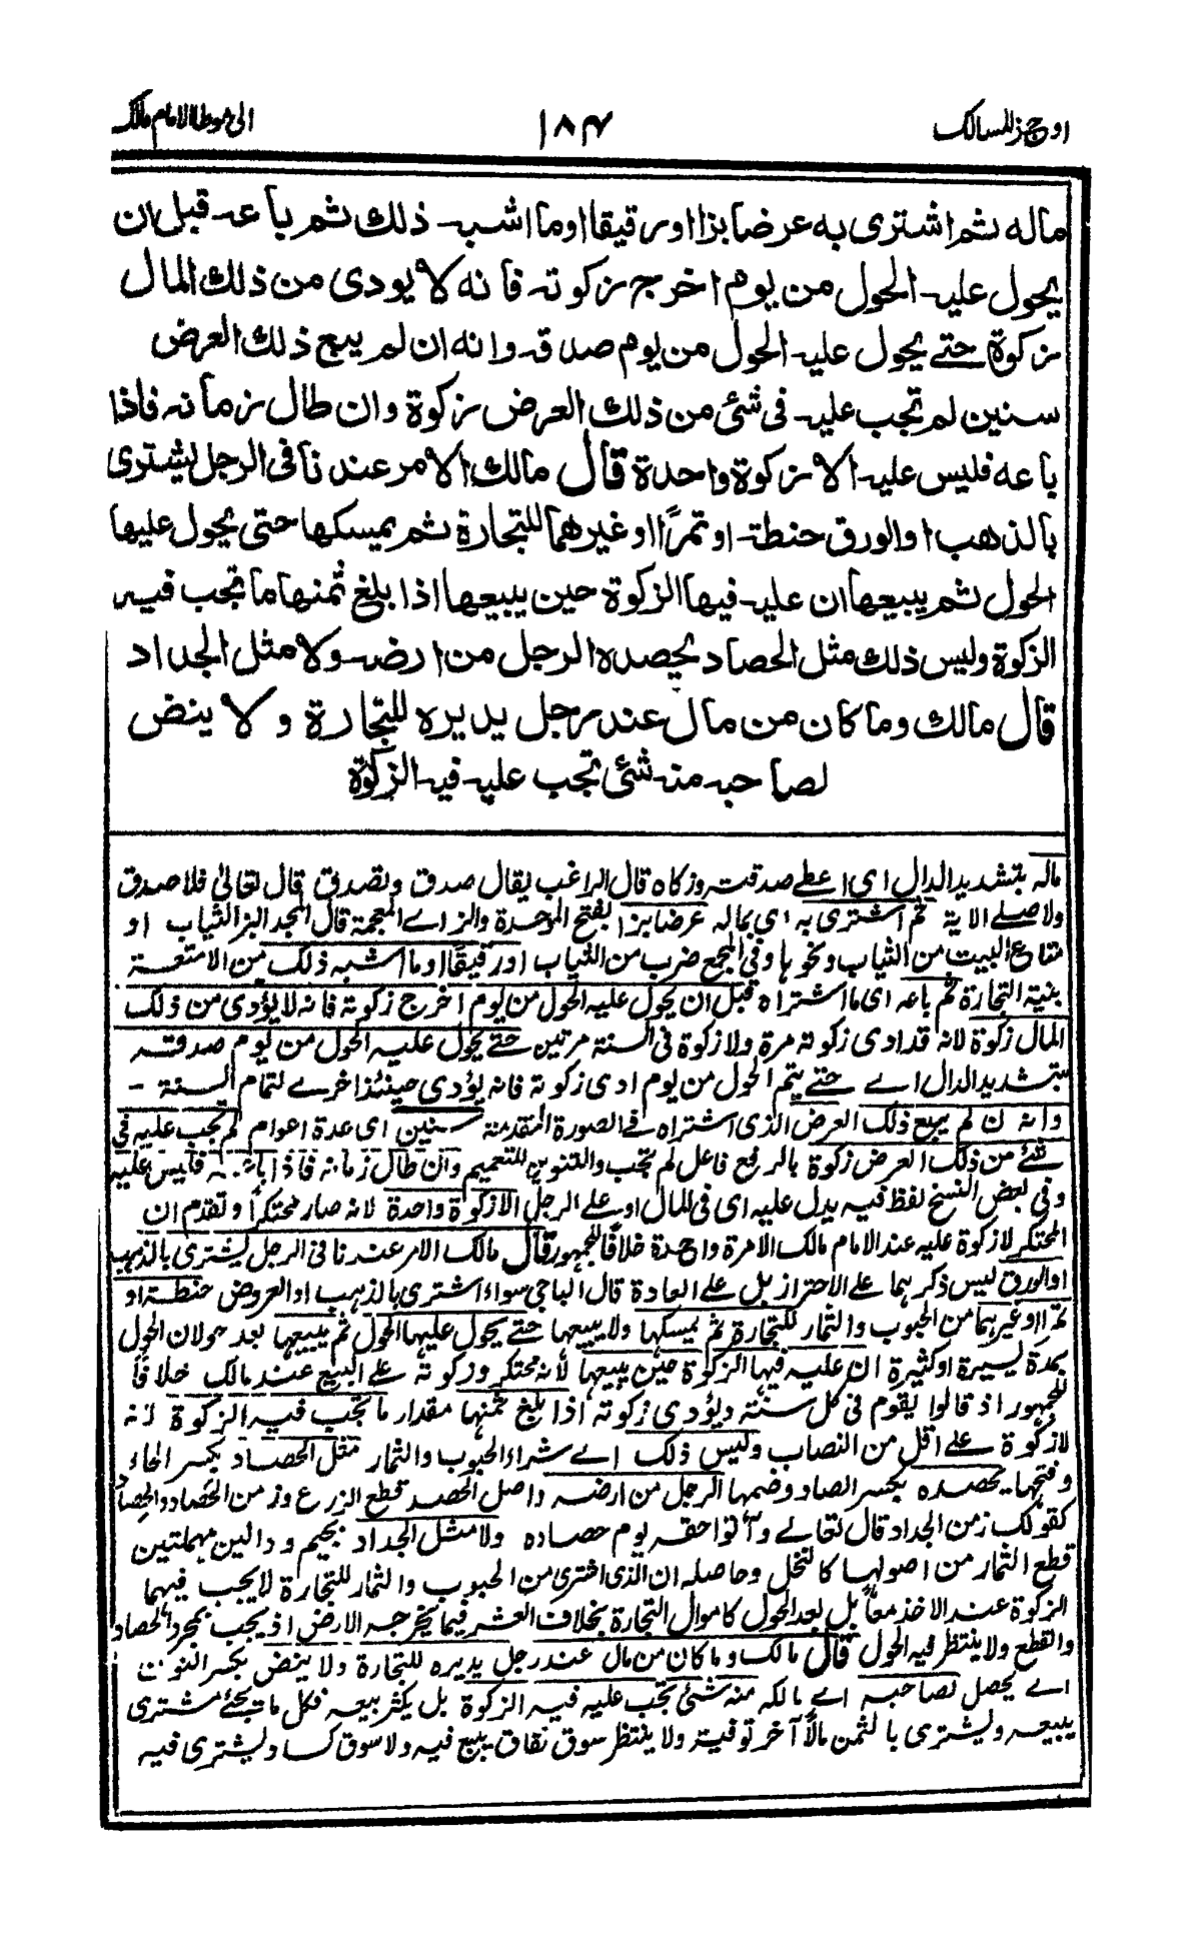 اوجز المسالك
١٨٤
الى موطا الامام مالك
ماله ثم اشترى به عرضا بزا او رقيقا او ما اشبه ذلك ثم باعه قبل ان
يحول عليه الحول من يوم اخرج زكوته فانه لا يودى من ذلك المال
زكوة حتے يحول عليه الحول من يوم صدقه وانه ان لم يبع ذلك العرض
سنين لم تجب عليه فى شئ من ذلك العرض زكوة وان طال زمانه فاذا
باعه فليس عليه الا زكوة واحدة قال مالك الامر عندنا فى الرجل يشترى
بالذهب او الورق حنطة او تمرًا او غيرهما للتجارة ثم يمسكها حتى يحول عليها
الحول ثم يبيعها ان عليه فيها الزكوة حين يبيعها اذا بلغ ثمنها ما تجب فيه
الزكوة وليس ذلك مثل الحصاد يحصده الرجل من ارضه ولا مثل الجداد
قال مالك وما كان من مال عند رجل يديره للتجارة ولا ينض
لصاحبه منه شئ تجب عليه فيه الزكوة
ماله بتشديد الدال اى اعطے صدقته وزكاه قال الراغب يقال صدق وتصدق قال تعالىٰ فلا صدق
ولا صلے الاية ثم اشترى به اى بماله عرضا بزا بفتح الموحدة والزاے المعجمة قال المجد البز الثياب او
متاع البيت من الثياب ونحوها وفى المجمع ضرب من الثياب او رقيقًا او ما اشبه ذلك من الامتعة
بنية التجارة ثم باعه اى ما اشتراه قبل ان يحول عليه الحول من يوم اخرج زكوته فانه لا يؤدى من ذلك
المال زكوة لانه قد ادى زكوته مرة ولا زكوة فى السنة مرتين حتے يحول عليه الحول من يوم صدقه
بتشديد الدال اے حتے يتم الحول من يوم ادى زكوته فانه يؤدى حينئذ اخرے لتمام السنة -
وانه ان لم يبع ذلك العرض الذى اشتراه فے الصورة المتقدمة سنين اى عدة اعوام لم تجب عليه فى
شئے من ذلك العرض زكوة بالرفع فاعل لم تجب والتنوين للتعميم وان طال زمانه فاذا باعه فليس عليه
وفى بعض النسخ لفظ فيه بدل عليه اى فى المال او علے الرجل الا زكوة واحدة لانه صار محتكرًا وتقدم ان
المحتكر لا زكوة عليه عند الامام مالك الا مرة واحدة خلافًا للجمهور قال مالك الامر عندنا فى الرجل يشترى بالذهب
او الورق ليس ذكرهما علے الاحتراز بل علے العادة قال الباجى سواء اشترى بالذهب او العروض حنطة او
تمرًا او غيرهما من الحبوب والثمار للتجارة ثم يمسكها ولا يبيعها حتے يحول عليها الحول ثم يبيعها بعد حولان الحول
بمدة يسيرة او كثيرة ان عليه فيها الزكوة حين يبيعها لانه محتكر وزكوته علے البيع عند مالك خلافًا
للجمهور اذ قالوا يقوم فى كل سنة ويؤدى زكوته اذا بلغ ثمنها مقدار ما تجب فيه الزكوة لانه
لا زكوة علے اقل من النصاب وليس ذلك اے شراء الحبوب والثمار مثل الحصاد بكسر الحاء
وفتحها يحصده بكسر الصاد وضمها الرجل من ارضه واصل الحصد قطع الزرع وزمن الحصاد والحصاد
كقولك زمن الجداد قال تعالے وآتوا حقه يوم حصاده ولا مثل الجداد بجيم ودالين مهملتين
قطع الثمار من اصولها كالنخل وحاصله ان الذى اشترى من الحبوب والثمار للتجارة لا يجب فيهما
الزكوة عند الاخذ معًا بل بعد الحول كاموال التجارة بخلاف العشر فيما يخرجه الارض اذ يجب بمجرد الحصاد
والقطع ولا ينتظر فيه الحول قال مالك وما كان من مال عند رجل يديره للتجارة ولا ينض بكسر النون
اے يحصل لصاحبه اے مالكه منه شئ تجب عليه فيه الزكوة بل يكثر بيعه فكل ما يجئے مشترى
يبيعه ويشترى بالثمن مالًا آخر توفيته ولا ينتظر سوق نفاق يبيع فيه ولا سوق كساد يشترى فيه